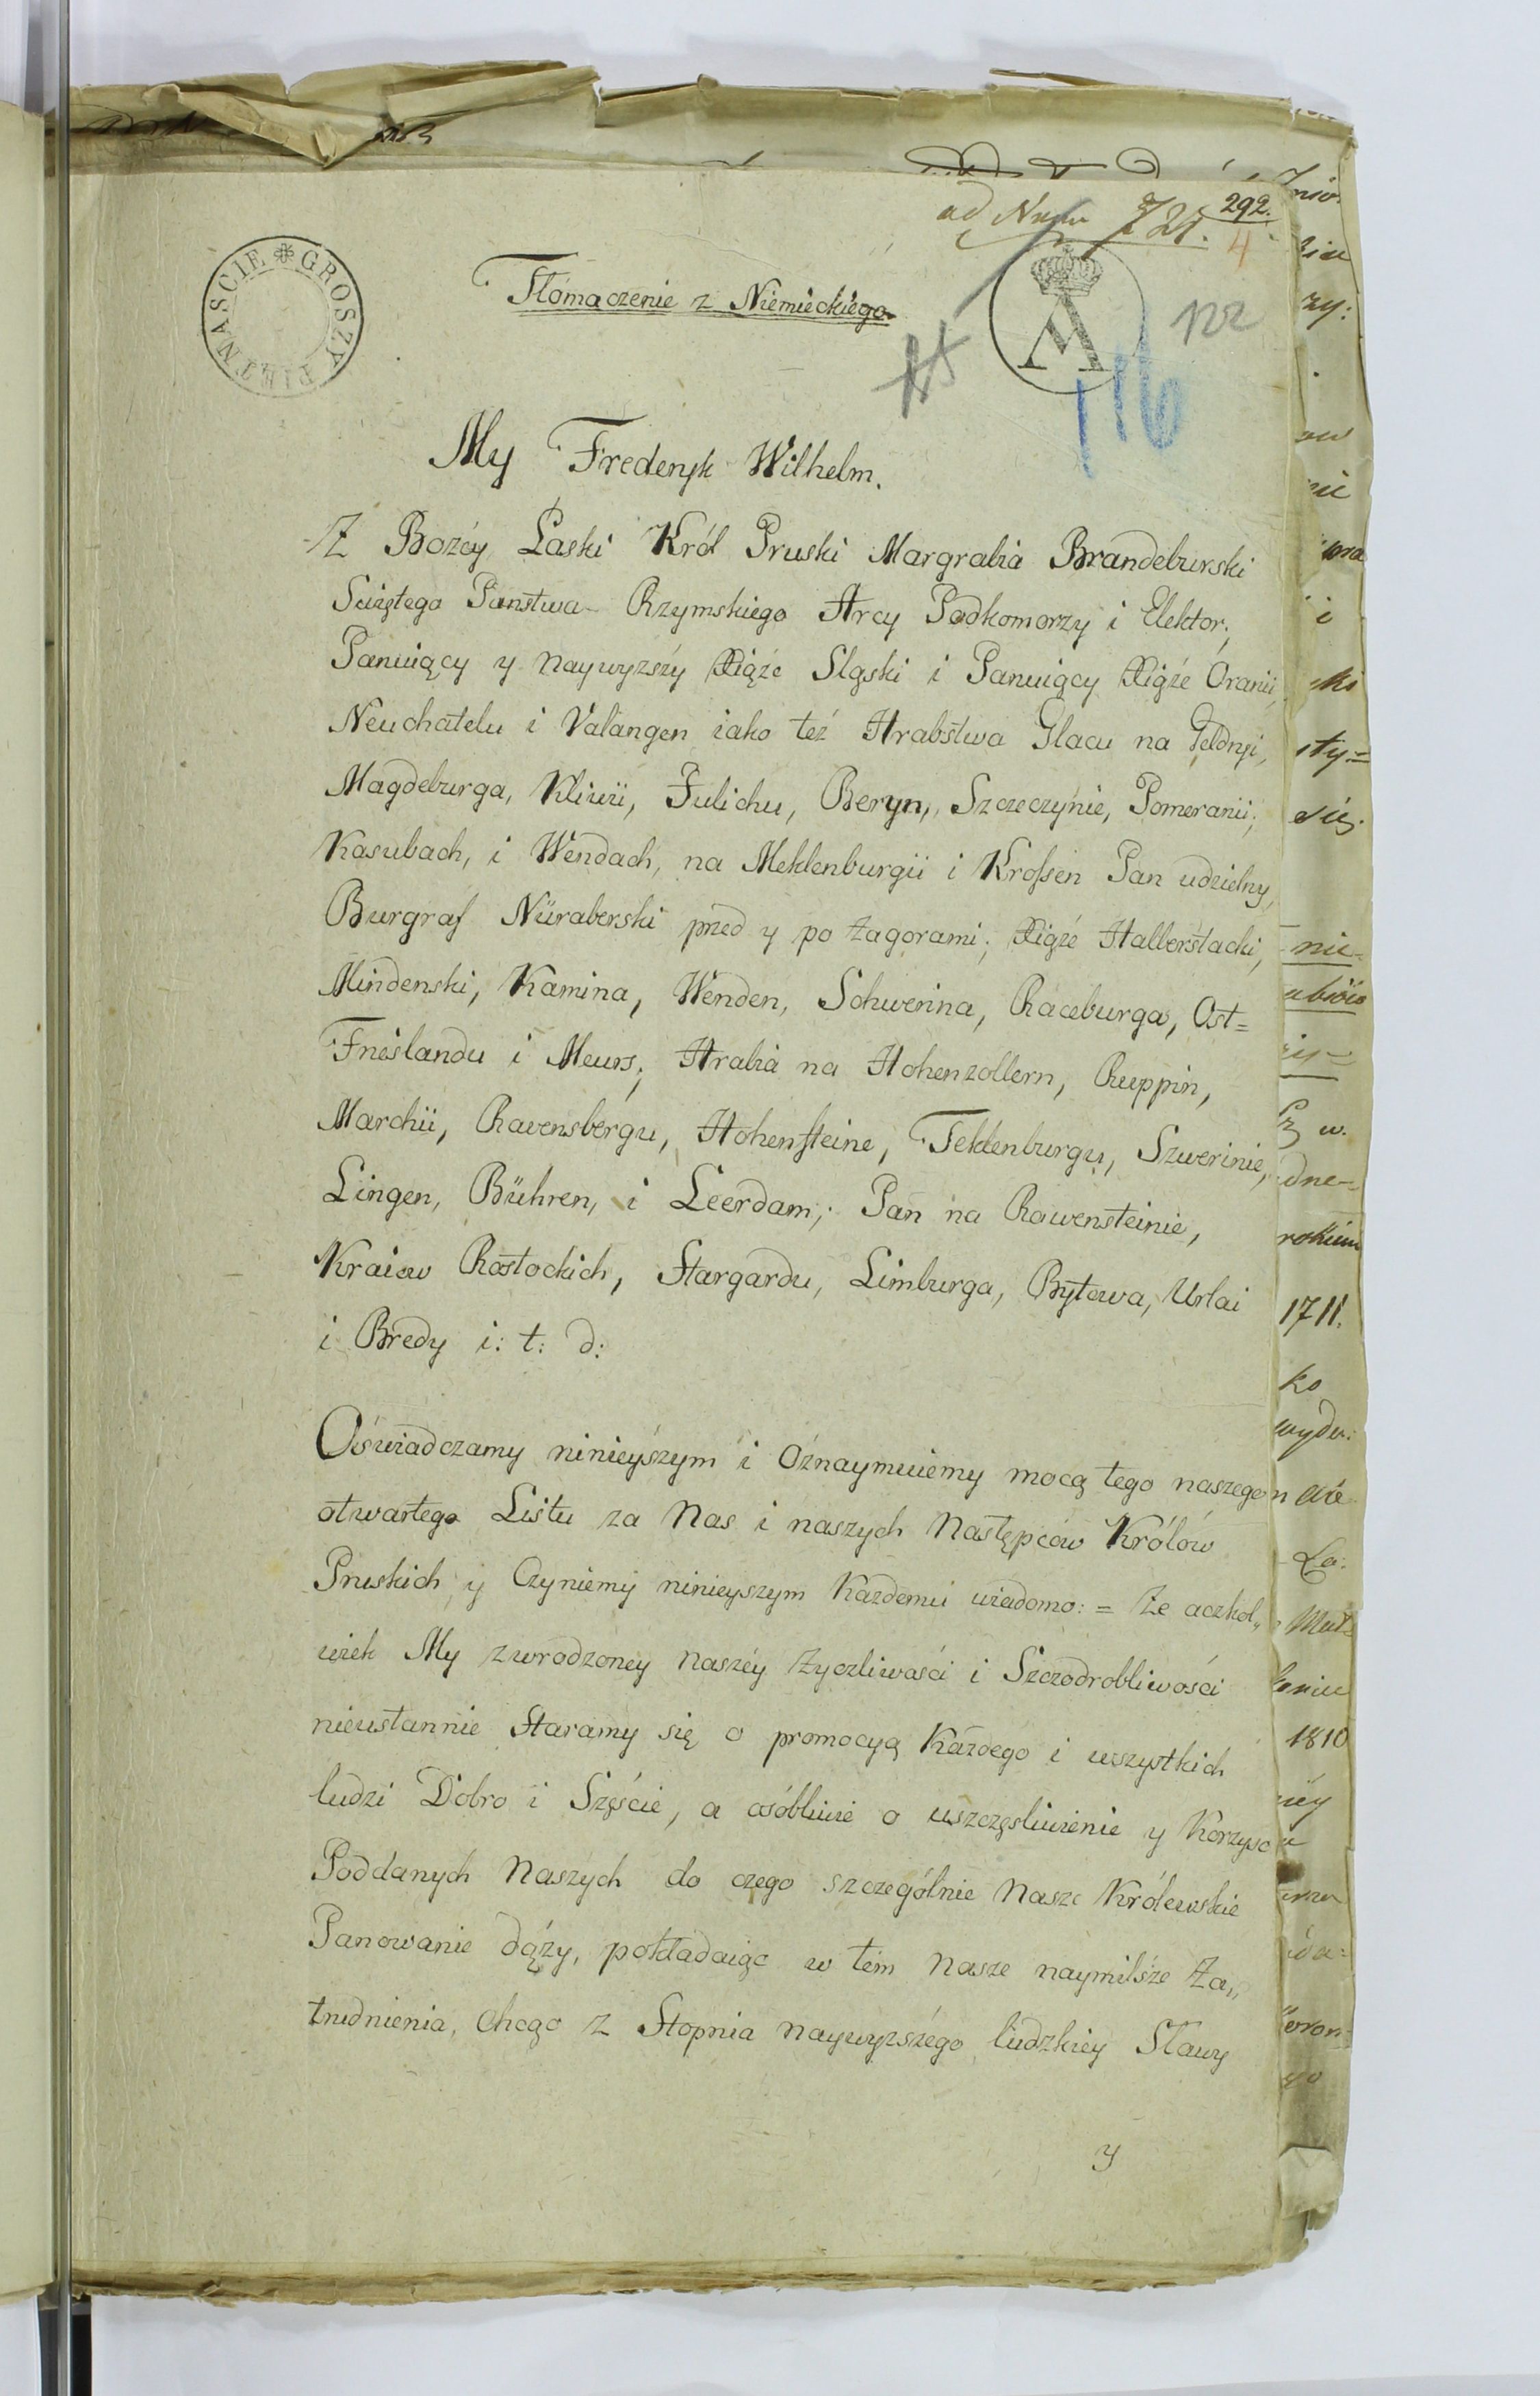 292.
ad Num 721. 4
GROSZY PIĘTNASCIE
Tłómaczenie z Niemieckiego.
116
My Frederyk Wilhelm.
Z Bożéy Łaski Król Pruski Margrabia Brandeburski
Swiętego Panstwa Rzymskiego Arcy Podkomorzy i Elektor;
Panuiący y naywyzszy Xiąże Sląski i Panuiący Xiąże Oranii,
Neuchatelu i Valangen iako też Hrabstwa Glacu na Geldryi,
Magdeburga, Kliwii, Julichu, Beryn, Szczeczynie, Pomeranii;
Kasubach, i Wendach, na Meklenburgii i Krossen Pan udzielny,
Burgraf Nüraberski przed y po Zagorami; Xiąże Halberstacki,
Mindenski, Kamina, Wenden, Schwerina, Raceburga, Ost=
Frieslandu i Meurs; Hrabia na Hohenzollern, Ruppin,
Marchii, Ravensbergu, Hohensteine, Teklenburgu, Szwerinie,
Lingen, Bühren, i Leerdam; Pan na Rawensteinie,
Kraiow Rostockich, Stargardu, Limburga, Bytowa, Urlai
i Bredy i: t: d:
Oświadczamy ninieyszym i Oznaymuiemy mocą tego naszego
otwartego Listu za Nas i naszych Następców Królów
Pruskich y Czyniemy ninieyszym Kazdemu wiadomo: = Ze aczkol„
wiek My zwrodzoney naszéy Zyczliwości i Szczodrobliwości
nieustannie Staramy się o promocyą Każdego i wszystkich
ludzi Dobro i Szęście, a osóbliwie o uszczęsliwienie y Korzysc
Poddanych Naszych do czego szczególnie Nasze Królewskie
Panowanie dąży, pokładaiąc w tém Nasze naymilsze Za„
trudnienia, Chcąc z Stopnia naywyzszégo ludzkiey Sławy
y
1711.
ko
1810